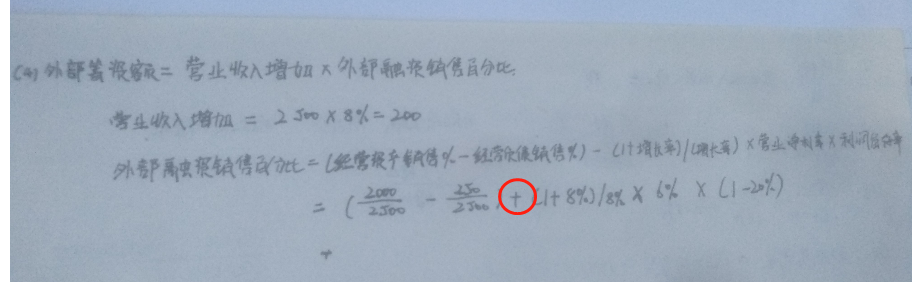 (4) 外部筹资额 = 营业收入增加 × 外部融资销售百分比.
营业收入增加 = 2500 × 8% = 200
外部融资销售百分比 = (经营资产销售% - 经营负债销售%) - (1+增长率)/(增长率) × 营业净利率 × 利润
= (2000/2500 - 250/2500) + (1+8%)/8% × 6% × (1-20%)